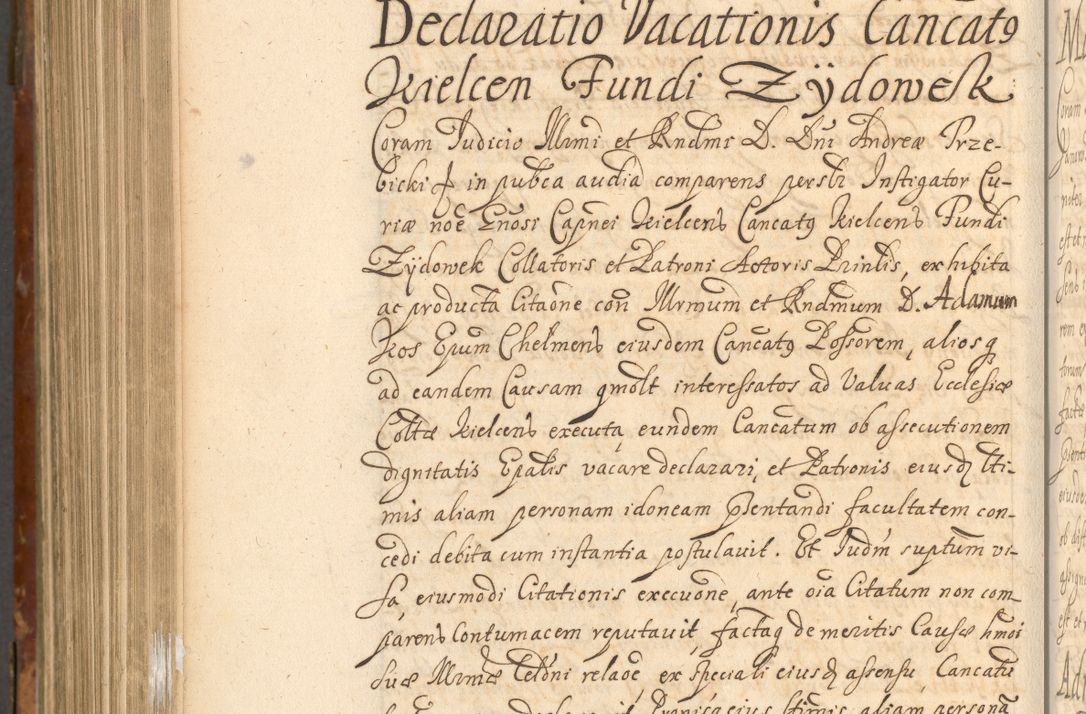 Declaratio Vacationis Cancatq
Kielcen Fundi Zÿdowesk
Coram Judicio Illrmi et Rndmi D. Dni Andreæ Prze-
bicki in pubca audia comparens persbr Instigator Cu-
riæ noe Gnosi Capnei Kielcens Cancatq Kielcens Fundi
Zÿdowek Collatoris et Patroni Actoris Prinlis, exhibita
ac producta Citaone con Illrmum et Rndmum D. Adamum
Kos Epum Chelmens eiusdem Cancatq Possorem, aliosq
ad eandem Causam qmolt interessatos ad Valuas Ecclesiæ
Coltæ Kielcens executa, eundem Cancatum ob assecutionem
dignitatis Epalis vacare declarari, et Patronis eiusd Itti-
mis aliam personam idoneam Psentandi facultatem con-
cedi debita cum instantia postulauit. Et Judm suptum vi-
sa, eiusmodi Citationis execuone, ante oia Citatum non com-
parens Contumacem reputauit, factaq de meritis Causæ hmoi
suæ Illrmæ Celdni relaoe, ex speciali eiusd assensu, Cancatu
aliam persona